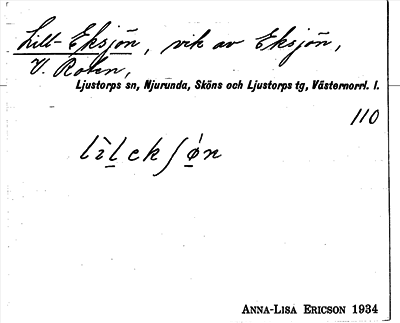 Lill-Eksjön, vik av Eksjön,
V. Roten,
Ljustorps sn, Njurunda, Sköns och Ljustorps tg, Västernorrl. l.
110
lìlekʃǿn
ANNA-LISA ERICSON 1934